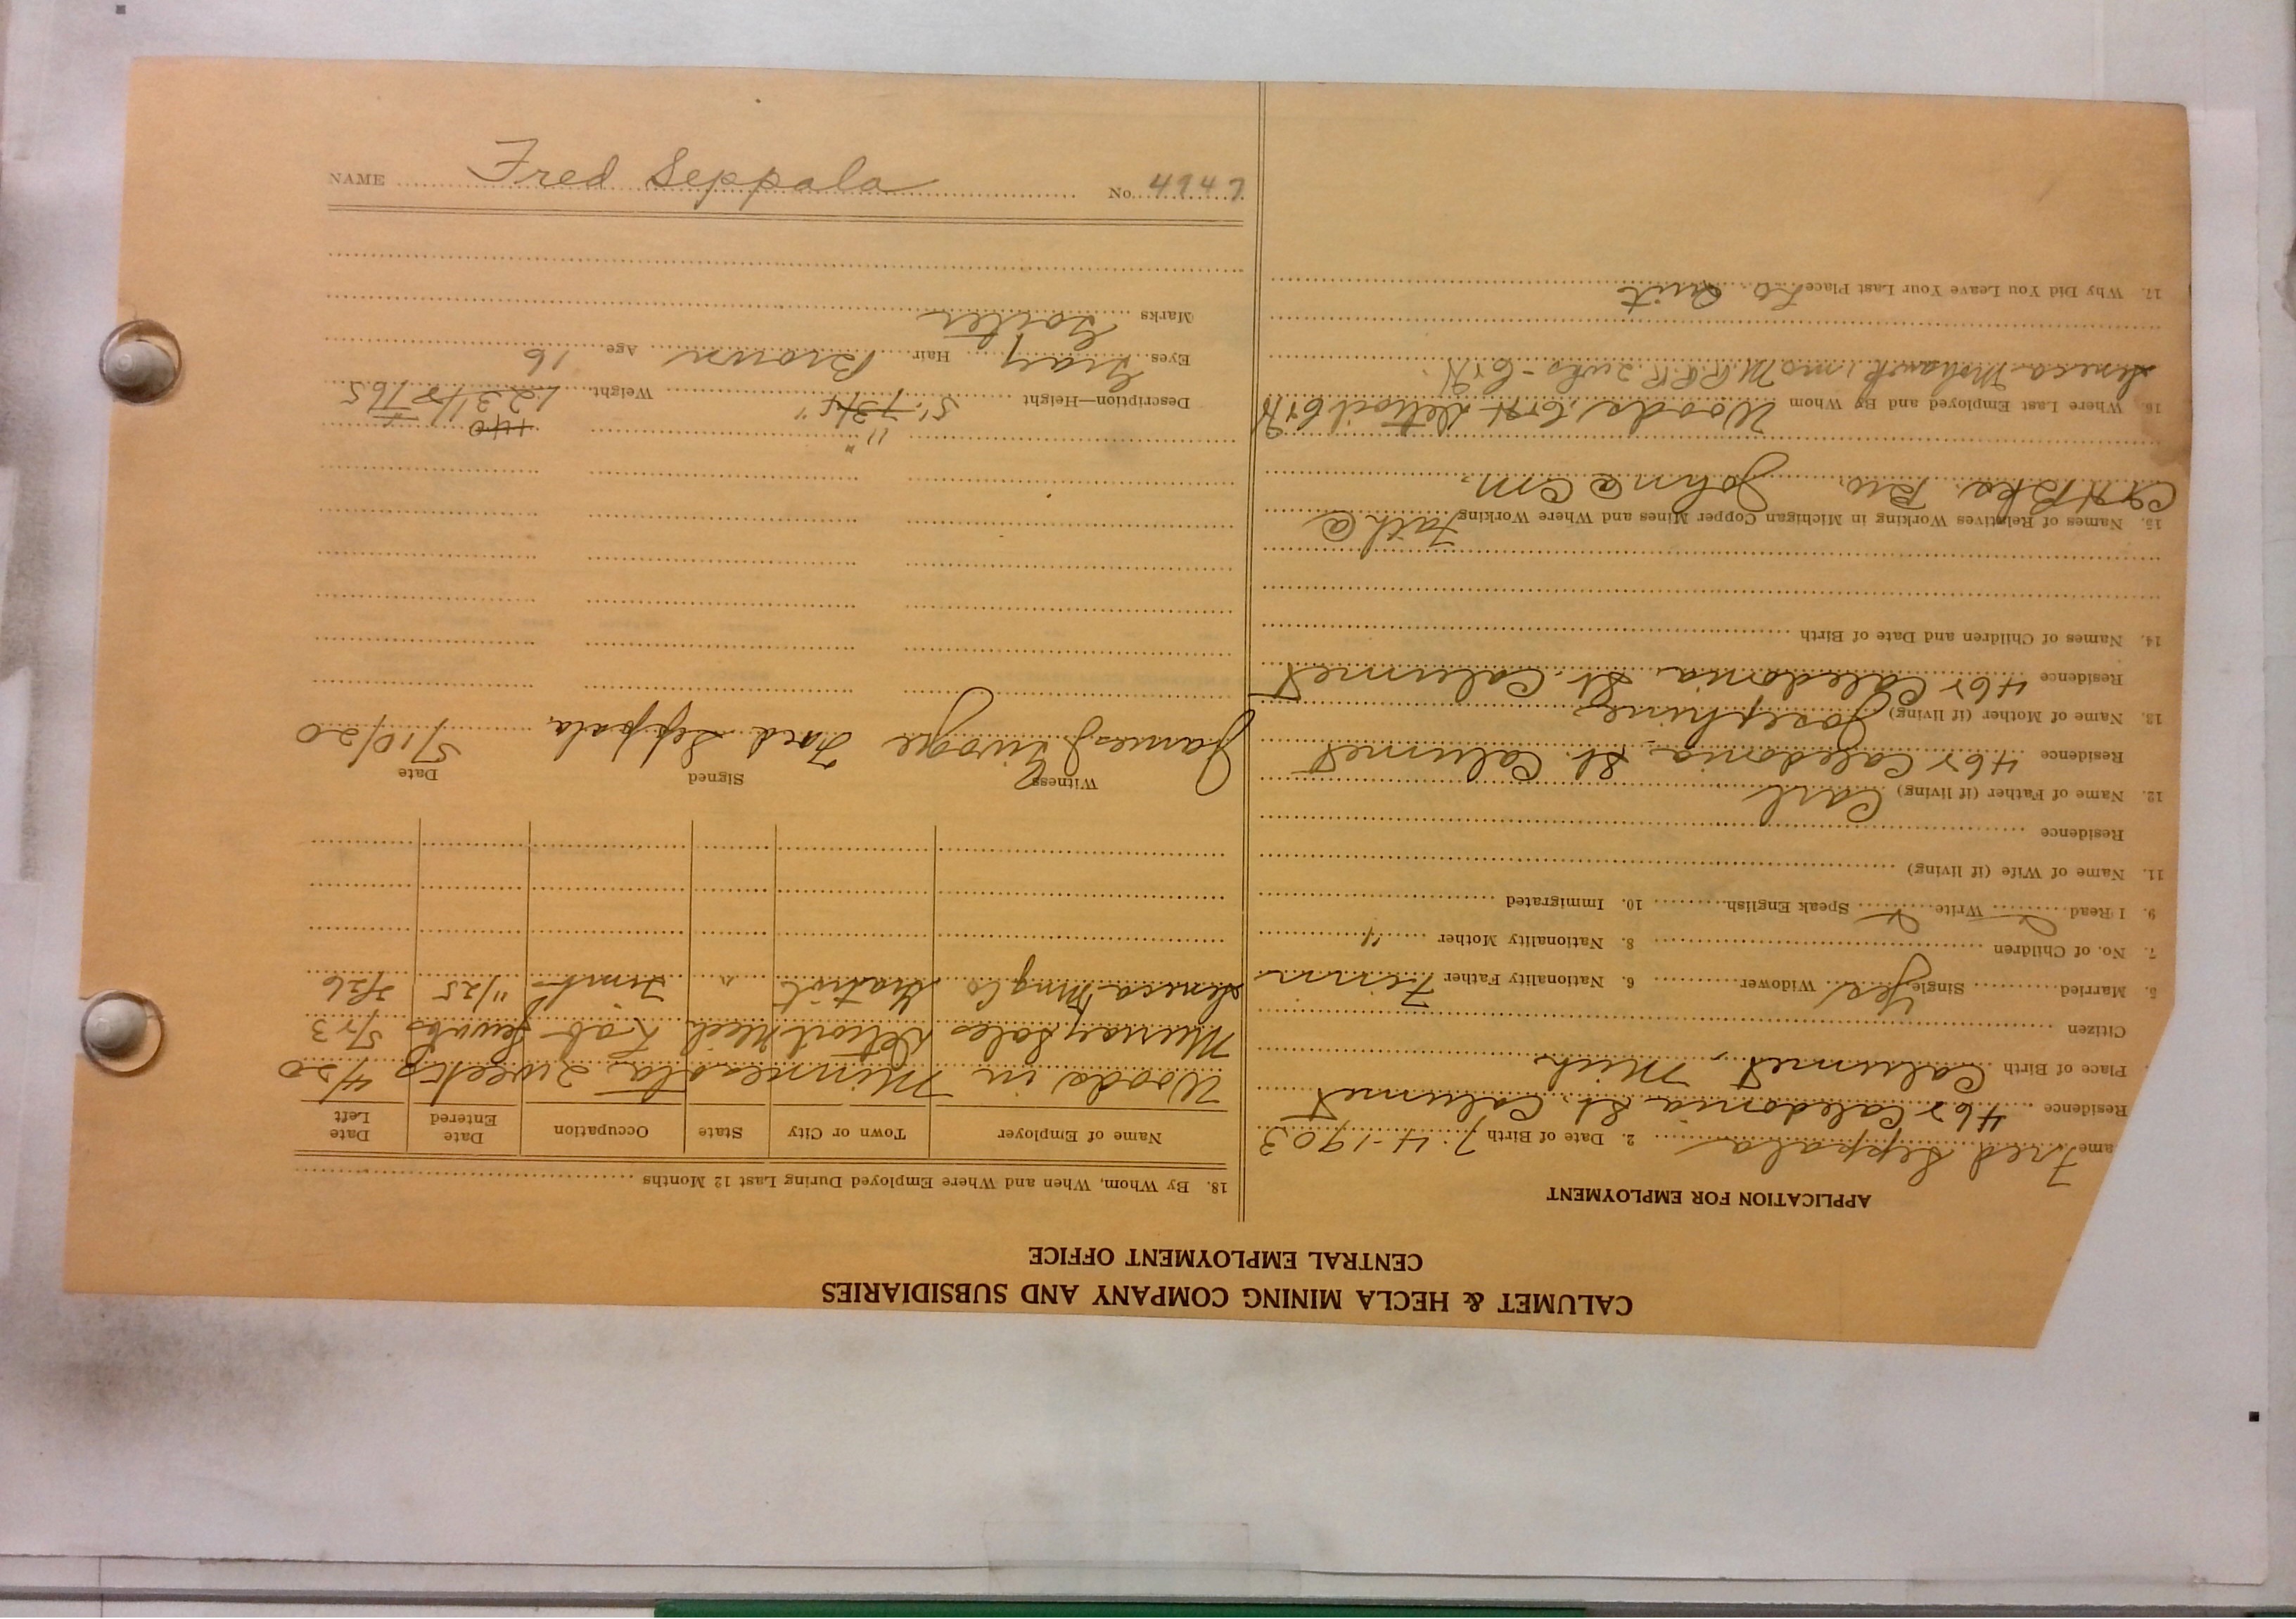 CALUMET & HECLA MINING COMPANY AND SUBSIDIARIES
CENTRAL EMPLOYMENT OFFICE
APPLICATION FOR EMPLOYMENT
ame Fred Seppala 2. Date of Birth 7-4-1903
Residence 468 Caledonia St. Calumet
Place of Birth Calumet, Mich
Citizen
5. Married Single Yes Widower 6. Nationality Father Finn
7. No. of Children 8. Nationality Mother "
9. I Read Write Speak English 10. Immigrated
11. Name of Wife (if living)
Residence
12. Name of Father (if living) Carl
Residence 468 Caledonia St. Calumet
13. Name of Mother (if living) Josephine
Residence 468 Caledonia St. Calumet
14. Names of Children and Date of Birth
15. Names of Relatives Working in Michigan Copper Mines and Where Working Fath @
C&H Bro. John @ Cm.
16. Where Last Employed and By Whom Woods, C&H Detroit C&H
Seneca Mohawk 1 mo M.C.R.R. 2 wks - C&H
17. Why Did You Leave Your Last Place Quit
18. By Whom, When and Where Employed During Last 12 Months
Name of Employer Town or City State Occupation Date Entered Date Left
Woods in Minnesota 2 weeks 4/20
Murray Sales Detroit Mich Lab 5/23
Seneca Mng Co Gratiot " Timb 11/25 2/26
Witness Signed Date
James J. Fred Seppala 5/10/20
" "
140
Description—Height 5' 7 Weight 123 165
Eyes Gray Hair Brown Age 16
Marks Goiter
NAME Fred Seppala No. 4747